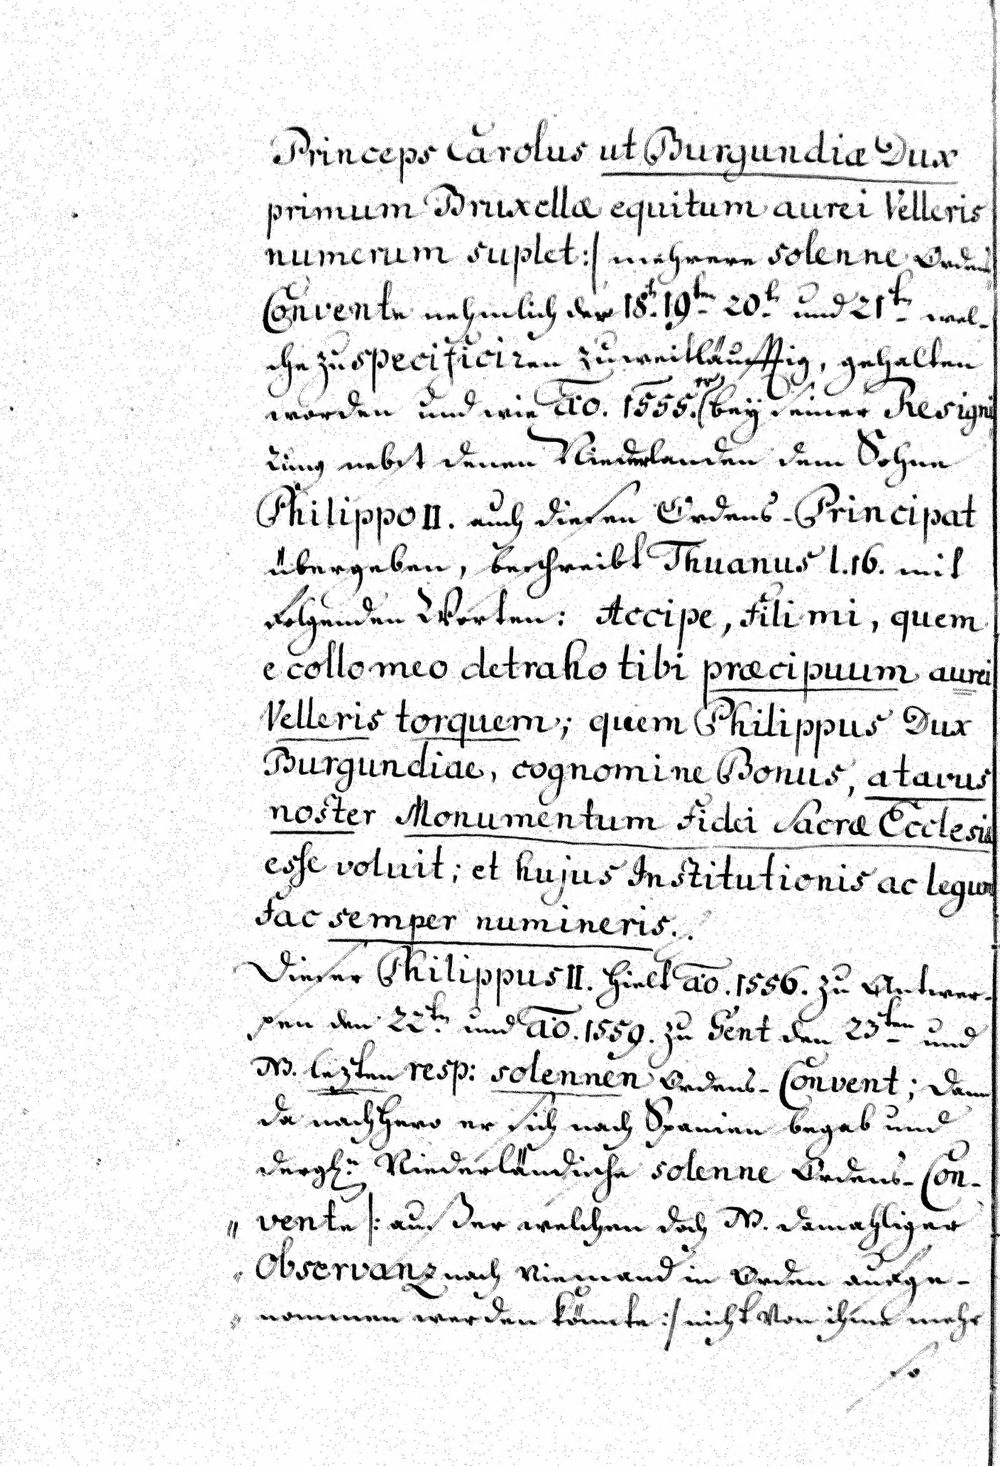 Princeps Carolus ut Burgundiæ Dux
primum Bruxellæ equitum aurei Velleris
numerum suplet :/ mehrere solenne Ordens
Convente nehmlich der 18t. 19ten 20t. und 21ten wel-
che zu specificiren zu weitläuffig, gehalten
worden und wie Ao. 1555. er bey seiner Resigni
rung nebst denen Niederlanden dem Sohne
Philippo II. auch diesen Ordens-Principat
übergeben, beschreibt Thuanus l. 16. mit
folgenden Worten: Accipe, fili mi, quem
e collo meo detraho tibi præcipuum aurei
Velleris torquem; quem Philippus Dux
Burgundiae, cognomine Bonus, atavus
noster Monumentum fidei Sacræ Ecclesiæ
esse voluit; et hujus Institutionis ac legum
fac semper numineris..
Dieser Philippus II. hielt ao. 1556. zu Antwer-
pen den 22ten und Ao. 1559. zu Gent den 23ten und
NB. lezten resp: solennen Ordens-Convent; dann
da nachhero er sich nach Spanien begab und
dergl: Niederländische solenne Ordens-Con-
" vente /: außer welchen doch NB. damahliger
" Observanz nach Niemand in Orden aufge-
" nommen werden könnte :/ nicht von ihme mehr
so